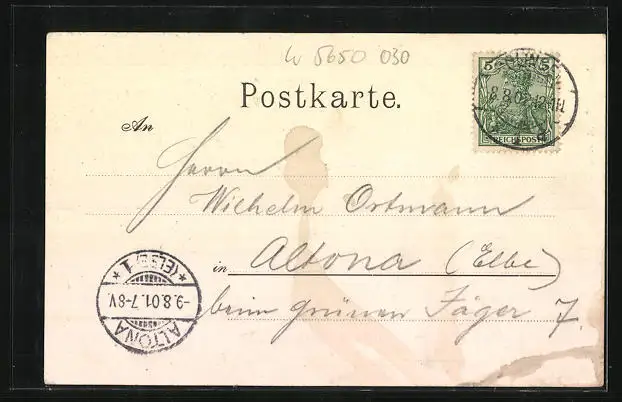 W 5650 030
Postkarte.
5 5
8.8.01.
REICHSPOST
An
Herrn
Wilhelm Ortmann
in Altona (Elbe)
beim grünen Jäger 7.
* (ELBE) 1 *
-9.8.01.7-8V.
ALTONA